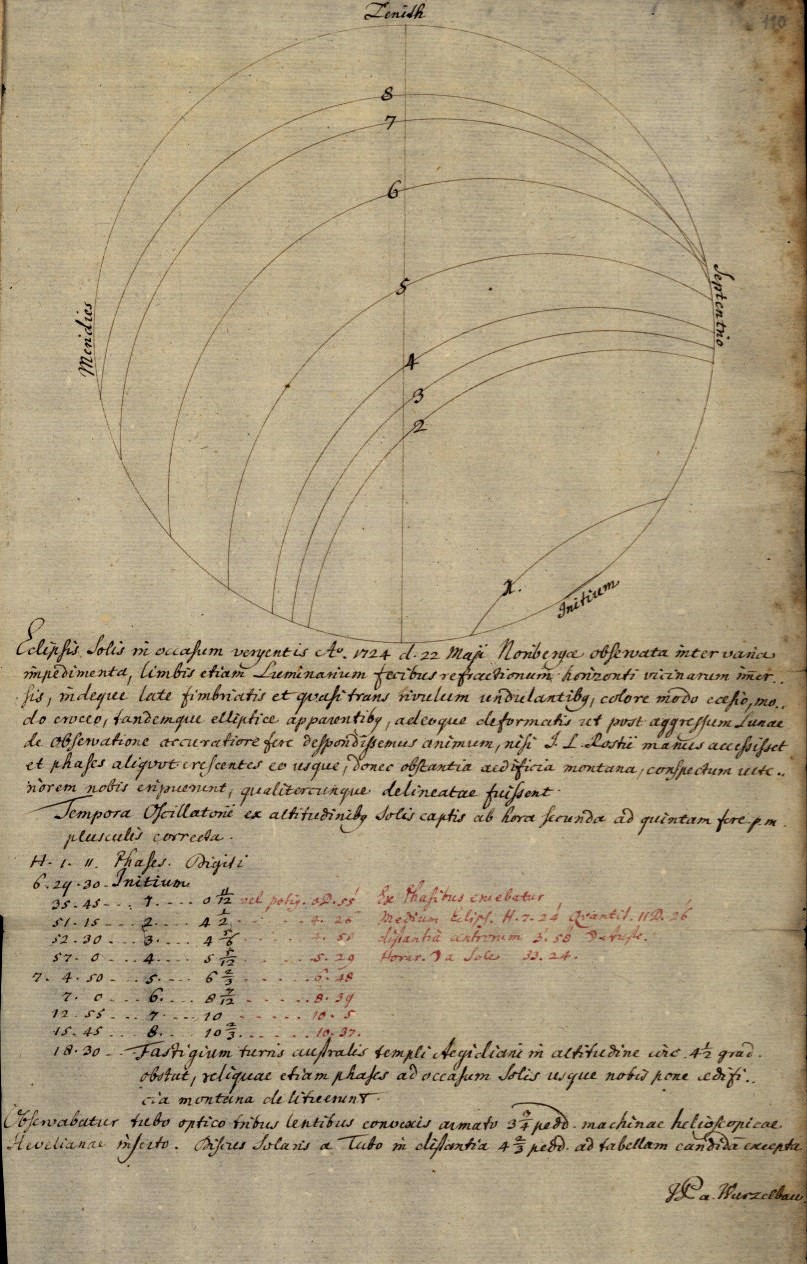 110
Zenith
8
7
6
5
4
3
2
1.
Meridies
Septentrio
Initium
Eclipsis Solis in occasum vergentis Aº. 1724 d. 22 Maji Noribergæ observata inter varia
impedimenta, limbis etiam Luminarium fecibus refractionum horizonti vicinarum immer..
sis, indeque late fimbriatis et quasi trans rivulum undulantibq, colore modo cæsio, mo..
do croceo, tandemque elliptice apparentibq, adeoque deformatis ut post aggressum Lunae
de observatione accuratiore fere despondissemus animum, nisi J. L. Rostii manus accessisset
et phases aliquot crescentes eo usque, donec obstantia aedificia montana, conspectum
norem nobis eripuerunt, qualitercunque delineatae fuissent.
Tempora Oscillatorii ex altitudinibq Solis captis ab hora secunda ad quintam fere p.m.
plusculis correcta.
H. I. II. Phases. Digiti
6. 29. 30. Initium
35. 45 - - - 1. - - - 0 11/12 vel potiq. 0D. 55
51. 15 - - - 2. - - - 4 1/2 - - - 4. 26
52. 30 - - - 3. - - - 4 5/6 - - - 4. 51
57. 0 - - - 4. - - - 5 5/12 - - - 5. 29
7. 4. 50 - - - 5. - - - 6 2/3 - - - 6. 48
7. 0 - - - 6. - - - 8 7/12 - - - 8. 39
12. 55 - - - 7. - - - 10 - - - 10. 5
15. 45 - - - 8. - - - 10 2/3 - - - 10. 37.
Ex Phasibus eruebatur
Medium Eclips. H. 7. 24 Quantit. 11D. 26
distantia centrorum 3. 58
Horar. a Sole 33. 24.
18. 30 - - Fastigium turris australis templi Aegidiani in altitudine circ. 4 1/2 grad.
obstat, reliquae etiam phases ad occasum Solis usque nobis pone ædifi..
cia montana delituerunt.
Observabatur tubo optico tribus lentibus convexis armato 3 3/4 pedd. machinae helioscopicae
Hevelianae inserto. Discus Solaris a Tubo in distantia 4 2/3 pedd. ad tabellam candidā excepta
JP a. Wurzelbau